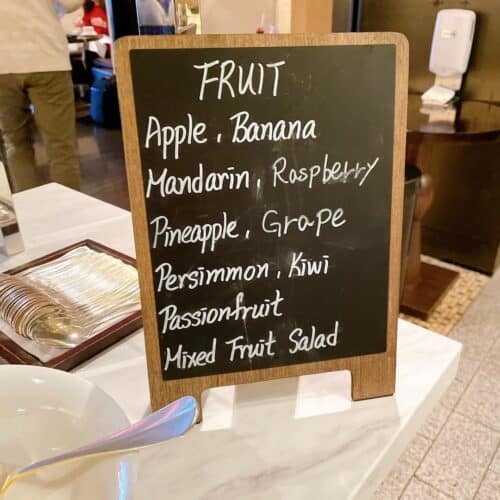 FRUIT
Apple, Banana
Mandarin, Raspberry
Pineapple, Grape
Persimmon, Kiwi
Passionfruit
Mixed Fruit Salad